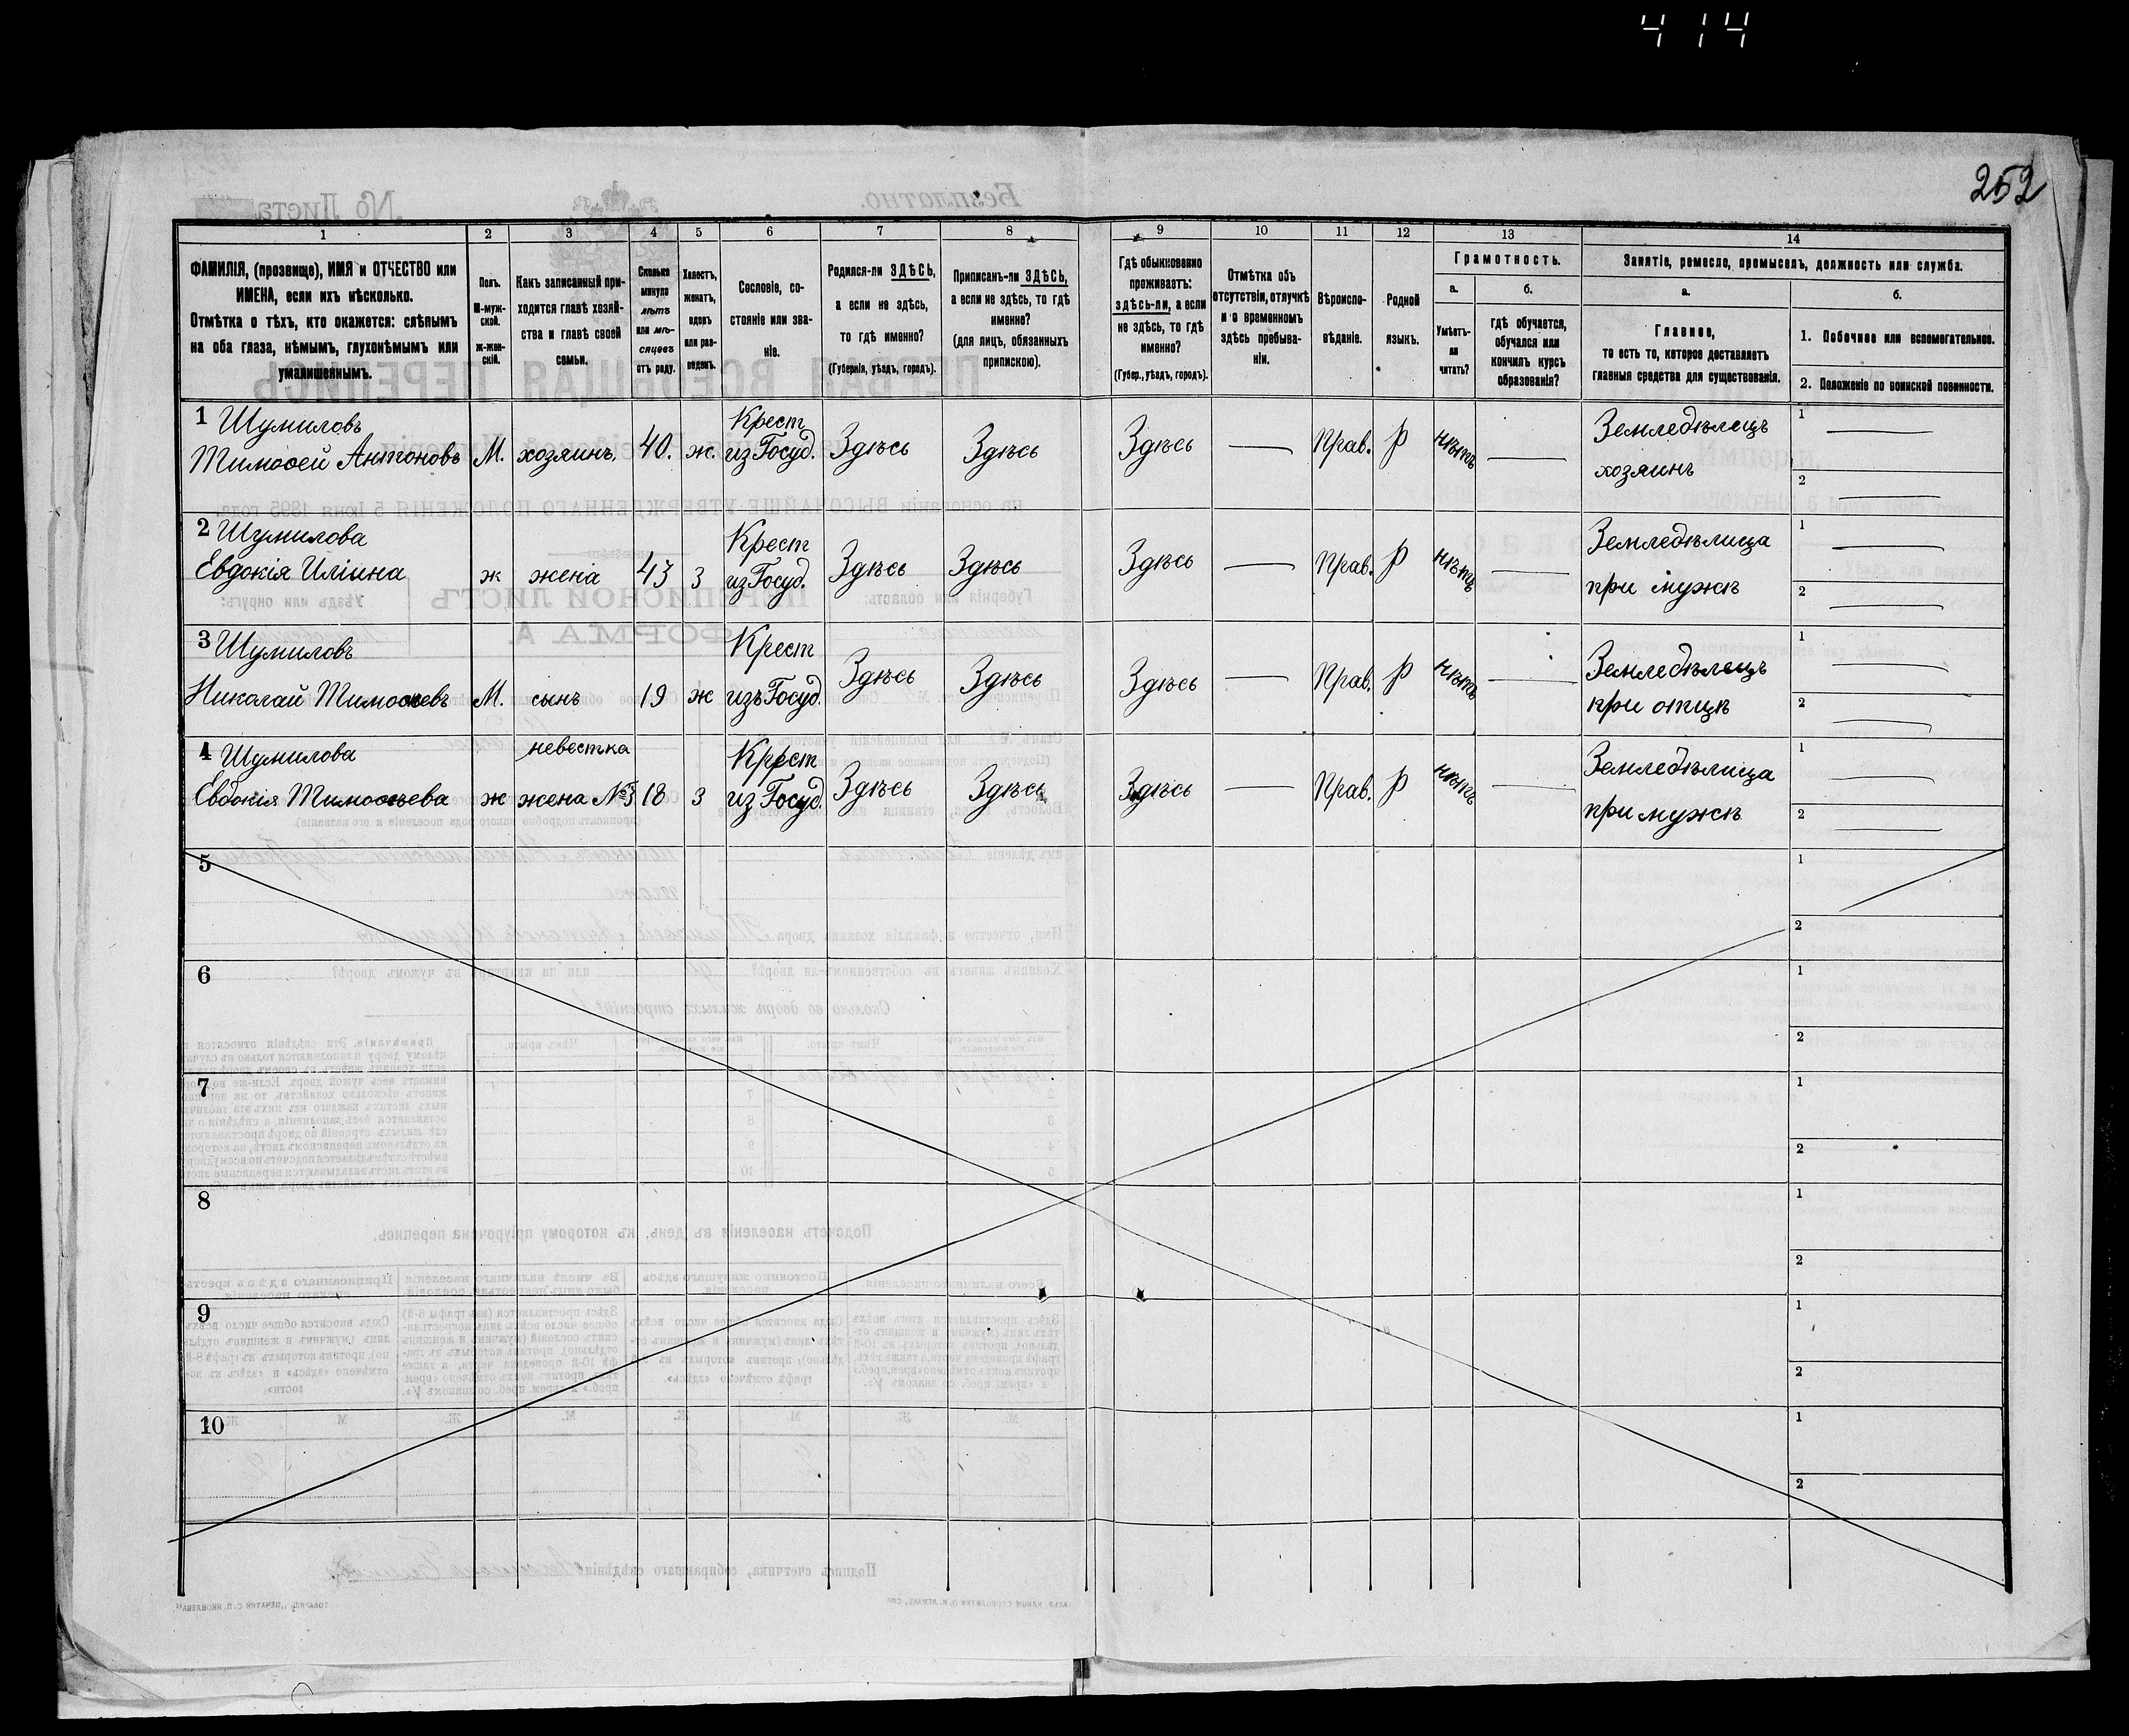 414
252
1 2 3 4 5 6 7 8 9 10 11 12 13 14
ФАМИЛІЯ, (прозвище), ИМЯ и ОТЧЕСТВО или
ИМЕНА, если ихъ нѣсколько.
Отмѣтка о тѣхъ, кто окажется: слѣпымъ
на оба глаза, нѣмымъ, глухонѣмымъ или
умалишеннымъ.
Полъ.
М-муж-
ской.
ж-жен-
скій.
Какъ записанный при-
ходится главѣ хозяй-
ства и главѣ своей
семьи.
Сколько
минуло
лѣтъ
или мѣ-
сяцевъ
отъ роду.
Холостъ,
женатъ,
вдовъ
или раз-
веденъ.
Сословіе, со-
стояніе или зва-
ніе.
Родился-ли ЗДѢСЬ,
а если не здѣсь,
то гдѣ именно?
(Губернія, уѣздъ, городъ).
Приписанъ-ли ЗДѢСЬ,
а если не здѣсь, то гдѣ
именно?
(для лицъ, обязанныхъ
припискою).
Гдѣ обыкновенно
проживаетъ:
здѣсь-ли, а если
не здѣсь, то гдѣ
именно?
(Губер., уѣздъ, городъ).
Отмѣтка объ
отсутствіи, отлучкѣ
и о временномъ
здѣсь пребыва-
ніи.
Вѣроиспо-
вѣданіе.
Родной
языкъ.
Грамотность.
а.
Умѣетъ-
ли
читать?
б.
гдѣ обучается,
обучался или
кончилъ курсъ
образованія?
Занятіе, ремесло, промыселъ, должность или служба.
а.
Главное,
то есть то, которое доставляетъ
главныя средства для существованія.
б.
1. Побочное или вспомогательное.
2. Положеніе по воинской повинности.
1 Шумиловъ Крест Земледѣлецъ 1
Тимоѳей Антоновъ М. хозяинъ. 40. ж. из Госуд. Здѣсь Здѣсь Здѣсь — Прав. р нѣтъ — хозяинъ 2
2 Шумилова Крест Земледѣлица 1
Евдокія Иліина ж жена 43 з из Госуд. Здѣсь Здѣсь Здѣсь — Прав. р нѣтъ — при мужѣ 2
3 Шумиловъ Крест Земледѣлецъ 1
Николай Тимоѳеевъ М. сынъ 19 ж изъ Госуд. Здѣсь Здѣсь Здѣсь — Прав. р нѣтъ — при отцѣ 2
4 Шумилова невестка Крест Земледѣлица 1
Евдокія Тимоѳеева ж жена №3 18 з из Госуд. Здѣсь Здѣсь Здѣсь — Прав. р нѣтъ — при мужѣ 2
5 1
2
6 1
2
7 1
2
8 1
2
9 1
2
10 1
2